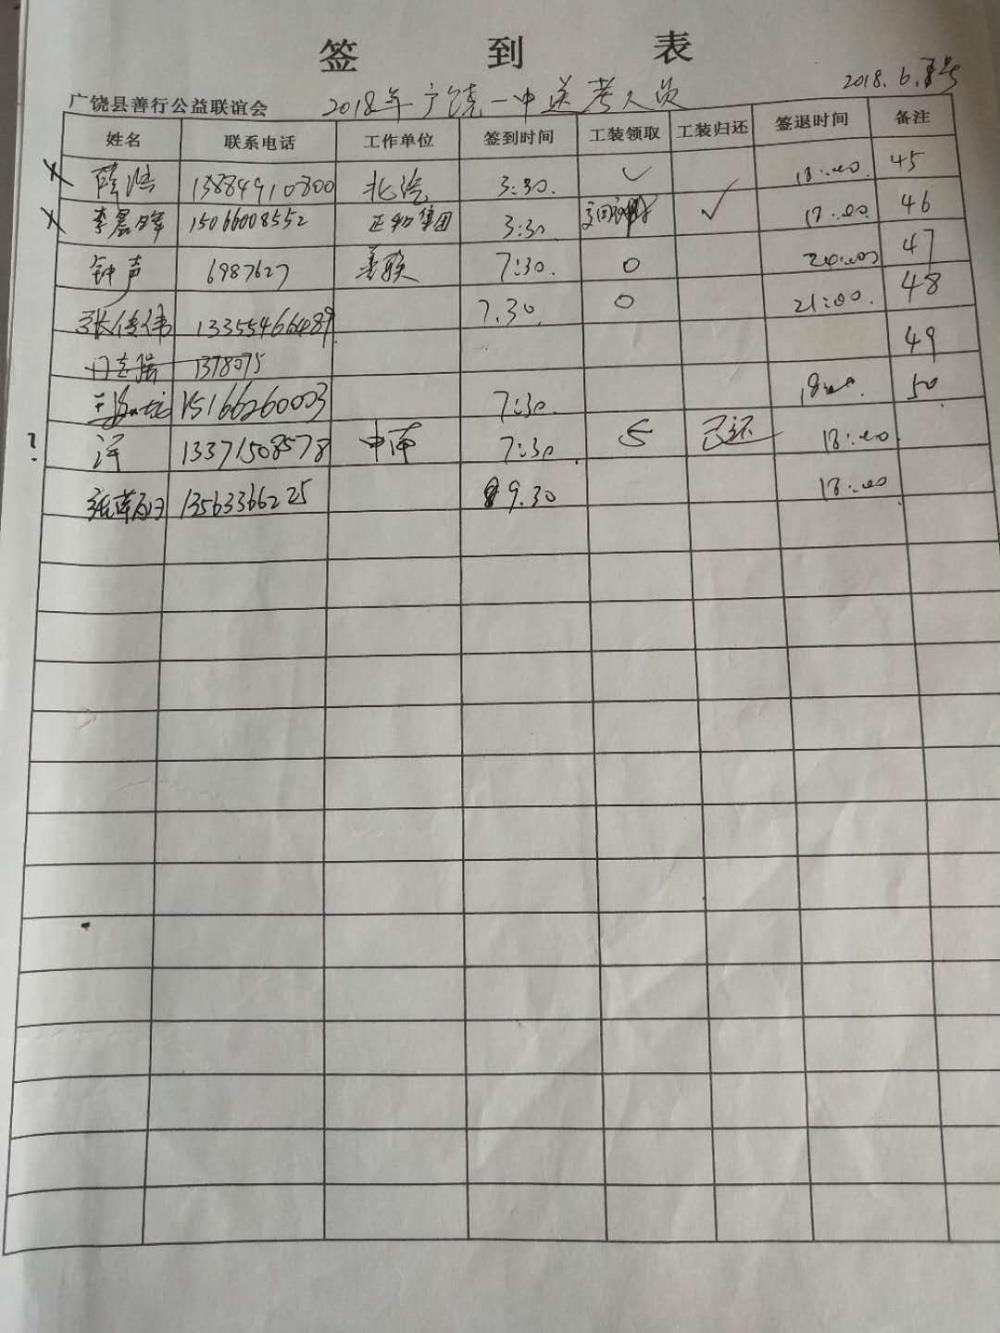 签 到 表
广饶县善行公益联谊会 2018年广饶一中送考人员 2018.6.号
姓名 联系电话 工作单位 签到时间 工装领取 工装归还 签退时间 备注
薛浩 13884910300 北汽 3:30. ✓ 18:00 45
李晨晖 15066008552 正和集团 3:30 ✓ 18:00 46
钟声 6987627 善联 7:30. 0 20:00 47
张传伟 13355466489 7.30. 0 21:00. 48
1378075 49
15166260003 7:30. 18:00. 50.
? 13371508578 中南 7:30. 5 已还 18:00
13563366225 9.30 18:00